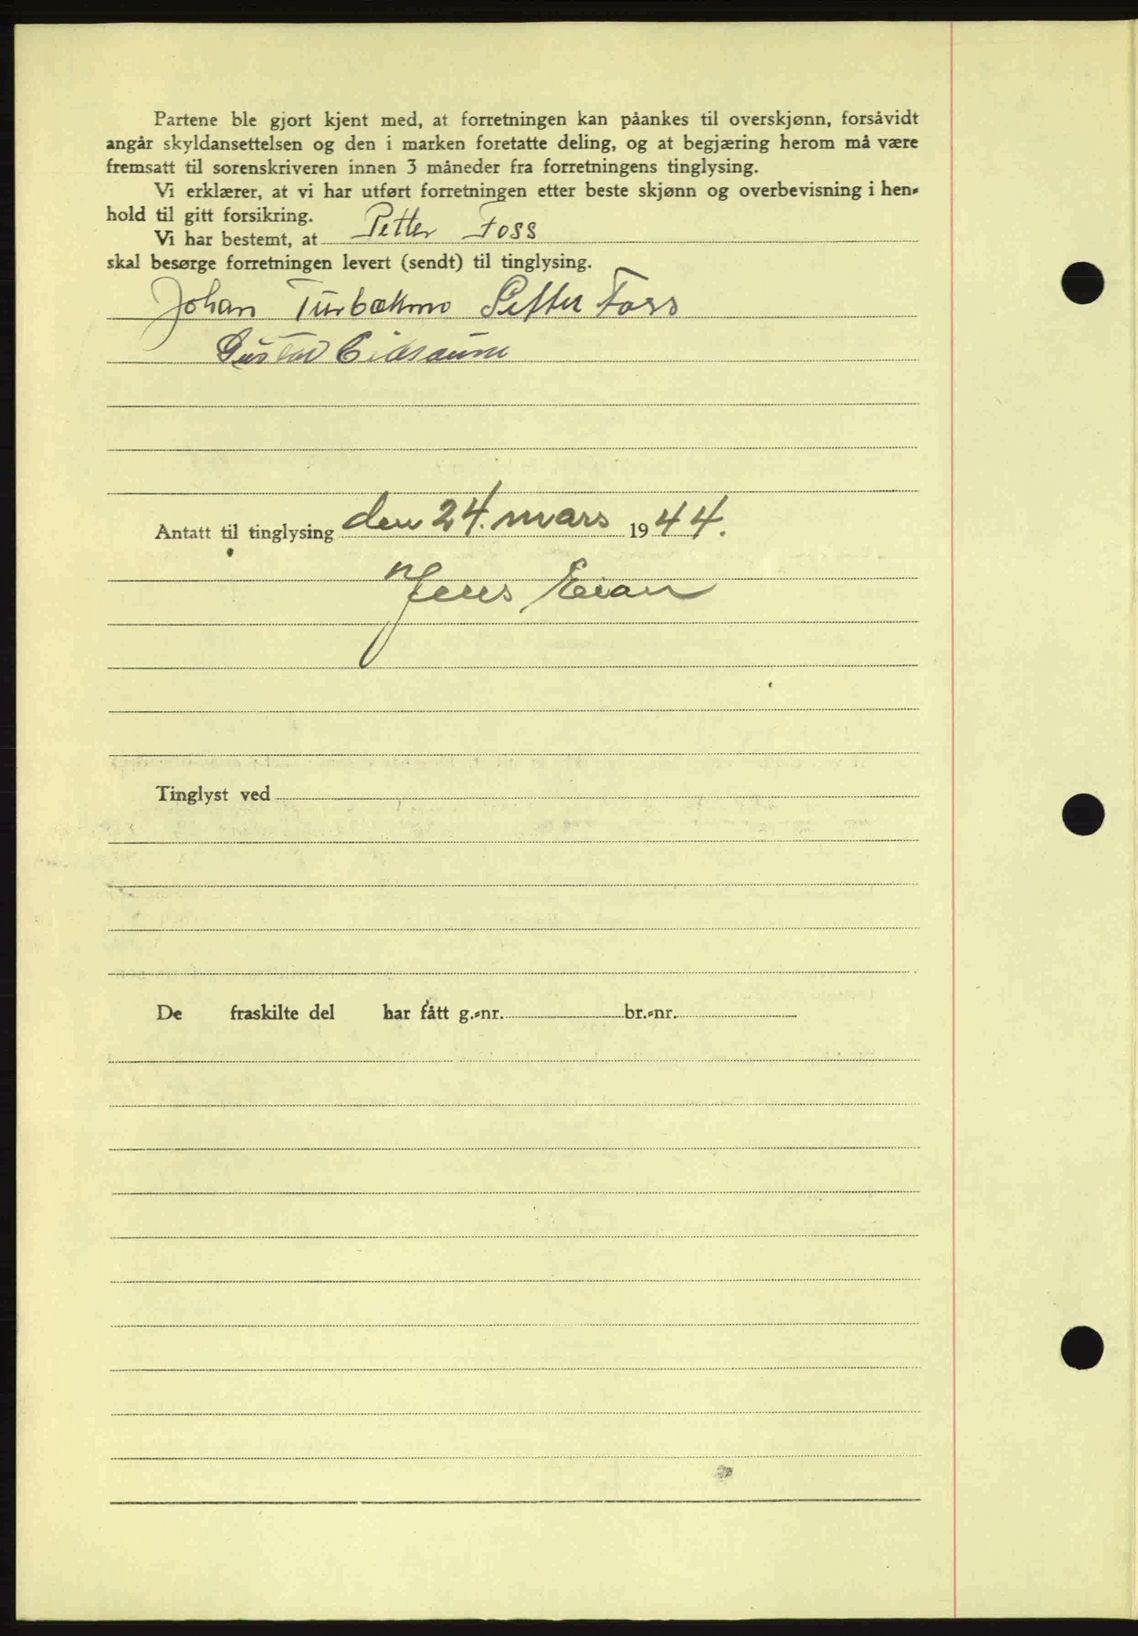 Partene ble gjort kjent med, at forretningen kan påankes til overskjønn, forsåvidt
angår skyldansettelsen og den i marken foretatte deling, og at begjæring herom må være
fremsatt til sorenskriveren innen 3 måneder fra forretningens tinglysing.
Vi erklærer, at vi har utført forretningen etter beste skjønn og overbevisning i hen-
hold til gitt forsikring.
Vi har bestemt, at Petter Foss
skal besørge forretningen levert (sendt) til tinglysing.
Johan Petter Foss
Gustav
Antatt til tinglysing den 24. mars 1944.
Jens Eian
Tinglyst ved
De fraskilte del har fått g.-nr. br.-nr.